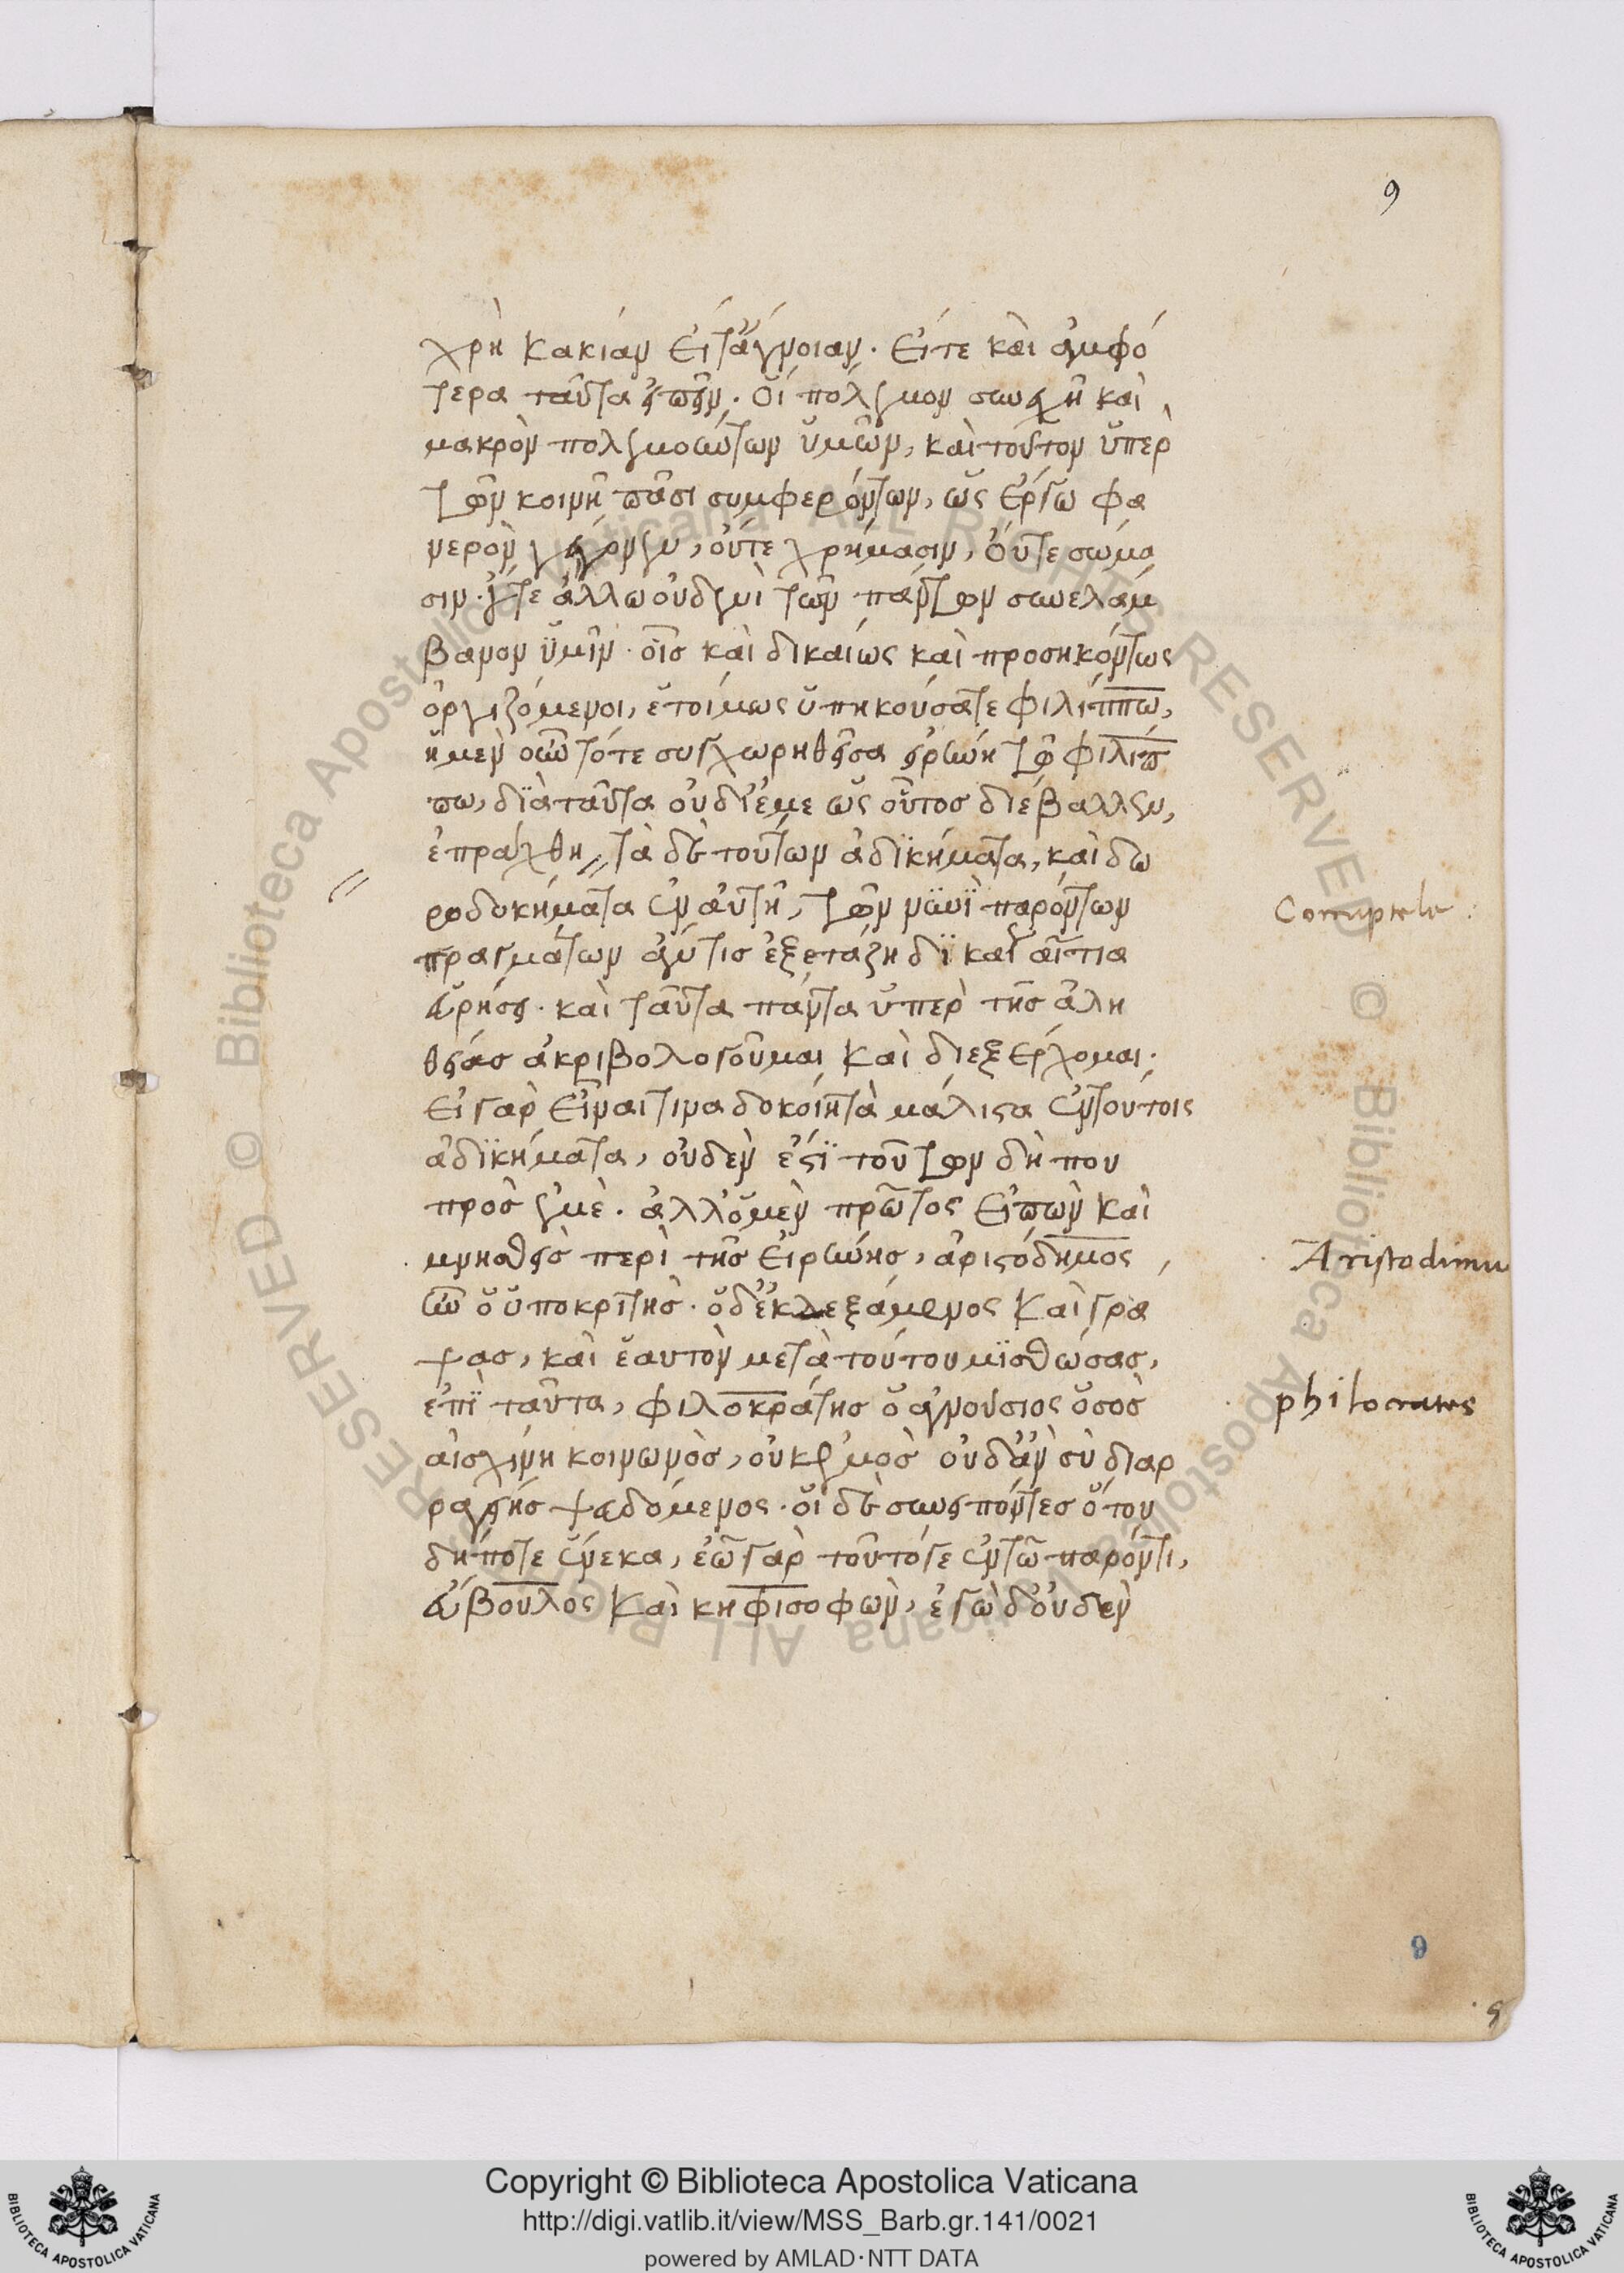 9
χρὴ κακίαν εἴτ' ἄγνοιαν. εἴτε καὶ ἀμφό
τερα ταῦτα εἰπεῖν. οἳ πόλεμον συνεχῆ καὶ
μακρὸν πολεμούντων ὑμῶν, καὶ τοῦτον ὑπὲρ
τῶν κοινῇ πᾶσι συμφερόντων, ὡς ἔργω φα
νερὸν γέγονεν, οὔτε χρήμασιν, οὔτε σώμα
σιν. οὔτε ἄλλω οὐδενὶ τῶν πάντων συνελάμ
βανον ὑμῖν. οἷς καὶ δικαίως καὶ προσηκόντως
ὀργιζόμενοι, ἑτοίμως ὑπηκούσατε φιλίππω,
ἡ μὲν οὖν τότε συγχωρηθεῖσα εἰρήνη τῶ φιλίπ
πω, διὰ ταῦτα οὐ δι' ἐμὲ ὡς οὗτος διέβαλλεν,
ἐπράχθη // τὰ δὲ τούτων ἀδϊκήματα, καὶ δω
ροδοκήματα ἐν αὐτῆ, τῶν νϋνὶ παρόντων
πραγμάτων ἄν τις ἐξετάζη δϊκαί αἴτια
εὑρήσει. καὶ ταῦτα πάντα ὑπὲρ τῆς ἀλη
θείας ἀκριβολογοῦμαι καὶ διεξέρχομαι.
εἰ γὰρ εἶναί τινα δοκοίη τὰ μάλιστα ἐν τούτοις
ἀδϊκήματα, οὐδέν ἐστϊ τούτων δή που
πρὸς ἐμὲ. ἀλλ' ὁ μὲν πρῶτος εἰπὼν καὶ
μνησθεὶς περὶ τῆς εἰρήνης, ἀριστόδημος,
ἦν ὁ ὑποκριτὴς. ὁ δ' ἐκδεξάμενος καὶ γρά
ψας, καὶ ἑαυτὸν μετὰ τούτου μϊσθώσας,
ἐπὶ ταῦτα, φιλοκράτης ὁ ἁγνούσιος ὁ σὸς
αἰσχίνη κοινωνὸς, οὐκ ἐμὸς οὐδ' ἂν σὺ διαρ
ραγῆς ψευδόμενος. οἱ δὲ συνειπόντες ὅτου
δήποτε ἕνεκα, ἐῶ γὰρ τοῦτό γε ἐν τῶ παρόντι,
εὔβουλος καὶ κηφισοφῶν, ἐγὼ δ' οὐδὲν
Corruptele
Aristodimu
philocrates
9
Copyright © Biblioteca Apostolica Vaticana
http://digi.vatlib.it/view/MSS_Barb.gr.141/0021
powered by AMLAD·NTT DATA
BIBLIOTECA APOSTOLICA VATICANA
BIBLIOTECA APOSTOLICA VATICANA
© Biblioteca Apostolica Vaticana ALL RIGHTS RESERVED © Biblioteca Apostolica Vaticana ALL RIGHTS RESERVED